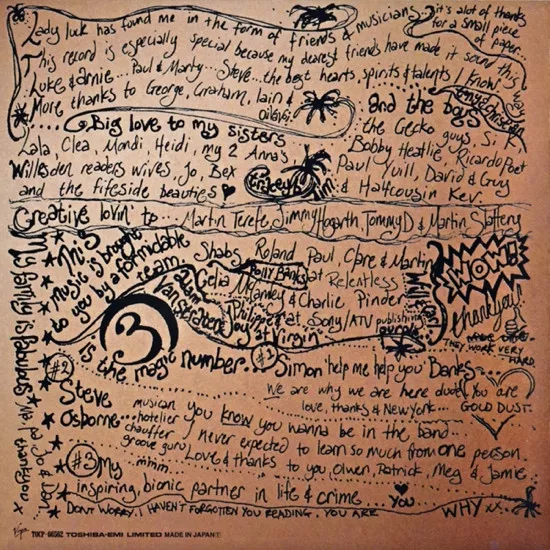 Lady luck has found me in the form of friends & musicians..
it's alot of thanks
for a small piece
of paper...
This record is especially special because my dearest friends have made it sound this way
Luke & arnie... Paul & Marty... Steve... the best hearts, spirits & talents I know
More thanks to George, Graham, Iain &
tony christian
and the boys
... Big love to my sisters
the Gecko guys, Si. K
Lala, Clea, Mondi, Heidi, my 2 Anna's
Bobby Heatlie, Ricardo Poet
Willesden readers wives, Jo, Bex
Paul Yuill, David & Guy
and the fireside beauties
Tim & Halfcousin Kev.
Creative lovin' to... Martin Terefe, Jimmy Hogarth, Tommy D & Martin Slattery
This
music is brought
to you by a formidable
team
Shabs, Roland Paul, Clare & Martin
Polly Banks at Relentless
Celia McCamley & Charlie Pinder
Philippe at Sony/ATV publishing
Joy at Virgin
WOW!
thankyou
THEY WORK VERY
HARD
3
is the magic number...
#1
Simon 'help me help you' Banks...
We are why we are here dude! You are
love, thanks & New York... GOLD DUST.
#2
Steve
Osborne...
musician
hotelier
chauffer
groove guru
mmm..
you know you wanna be in the band...
I never expected to learn so much from one person
Love & thanks to you, Olwen, Patrick, Meg & Jamie
#3 My
inspiring, bionic partner in life & crime
you
DONT WORRY.. I HAVEN'T FORGOTTEN YOU READING, YOU ARE WHY xx
My family is fabulous
Ma, Pa, Jo & Dan..
thankyou x
Virgin TOCP-66562 TOSHIBA-EMI LIMITED MADE IN JAPAN